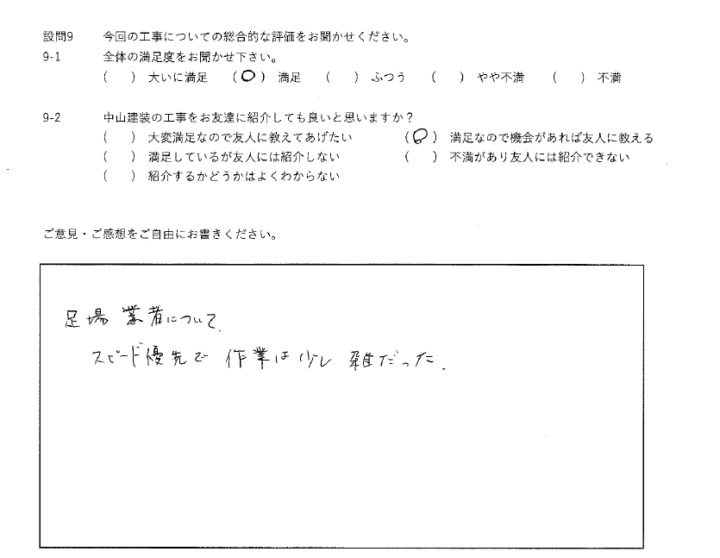 設問9 今回の工事についての総合的な評価をお聞かせください。
9-1 全体の満足度をお聞かせ下さい。
( ) 大いに満足 (○) 満足 ( ) ふつう ( ) やや不満 ( ) 不満
9-2 中山建装の工事をお友達に紹介しても良いと思いますか？
( ) 大変満足なので友人に教えてあげたい (○) 満足なので機会があれば友人に教える
( ) 満足しているが友人には紹介しない ( ) 不満があり友人には紹介できない
( ) 紹介するかどうかはよくわからない
ご意見・ご感想をご自由にお書きください。
足場業者について.
スピード優先で作業は少し雑だった.